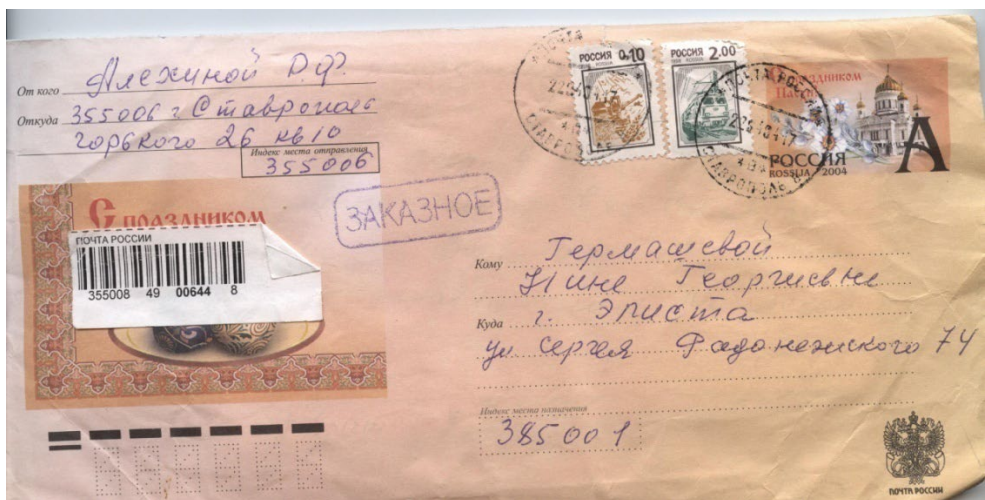 От кого Алехиной Р.Ф.
Откуда 355006 г. Ставрополь
Горького 26 кв 10
Индекс места отправления
355006
РОССИЯ 0.10
РОССИЯ 2.00
С праздником
Пасхи
ПОЧТА РОССИИ
СТАВРОПОЛЬ
РОССИЯ А
ROSSIJA 2004
С праздником
ЗАКАЗНОЕ
ПОЧТА РОССИИ
355008 49 00644 8
Кому Гермашевой
Нине Георгиевне
Куда г. Элиста
ул Сергея Радонежского 74
Индекс места назначения
385001
ПОЧТА РОССИИ